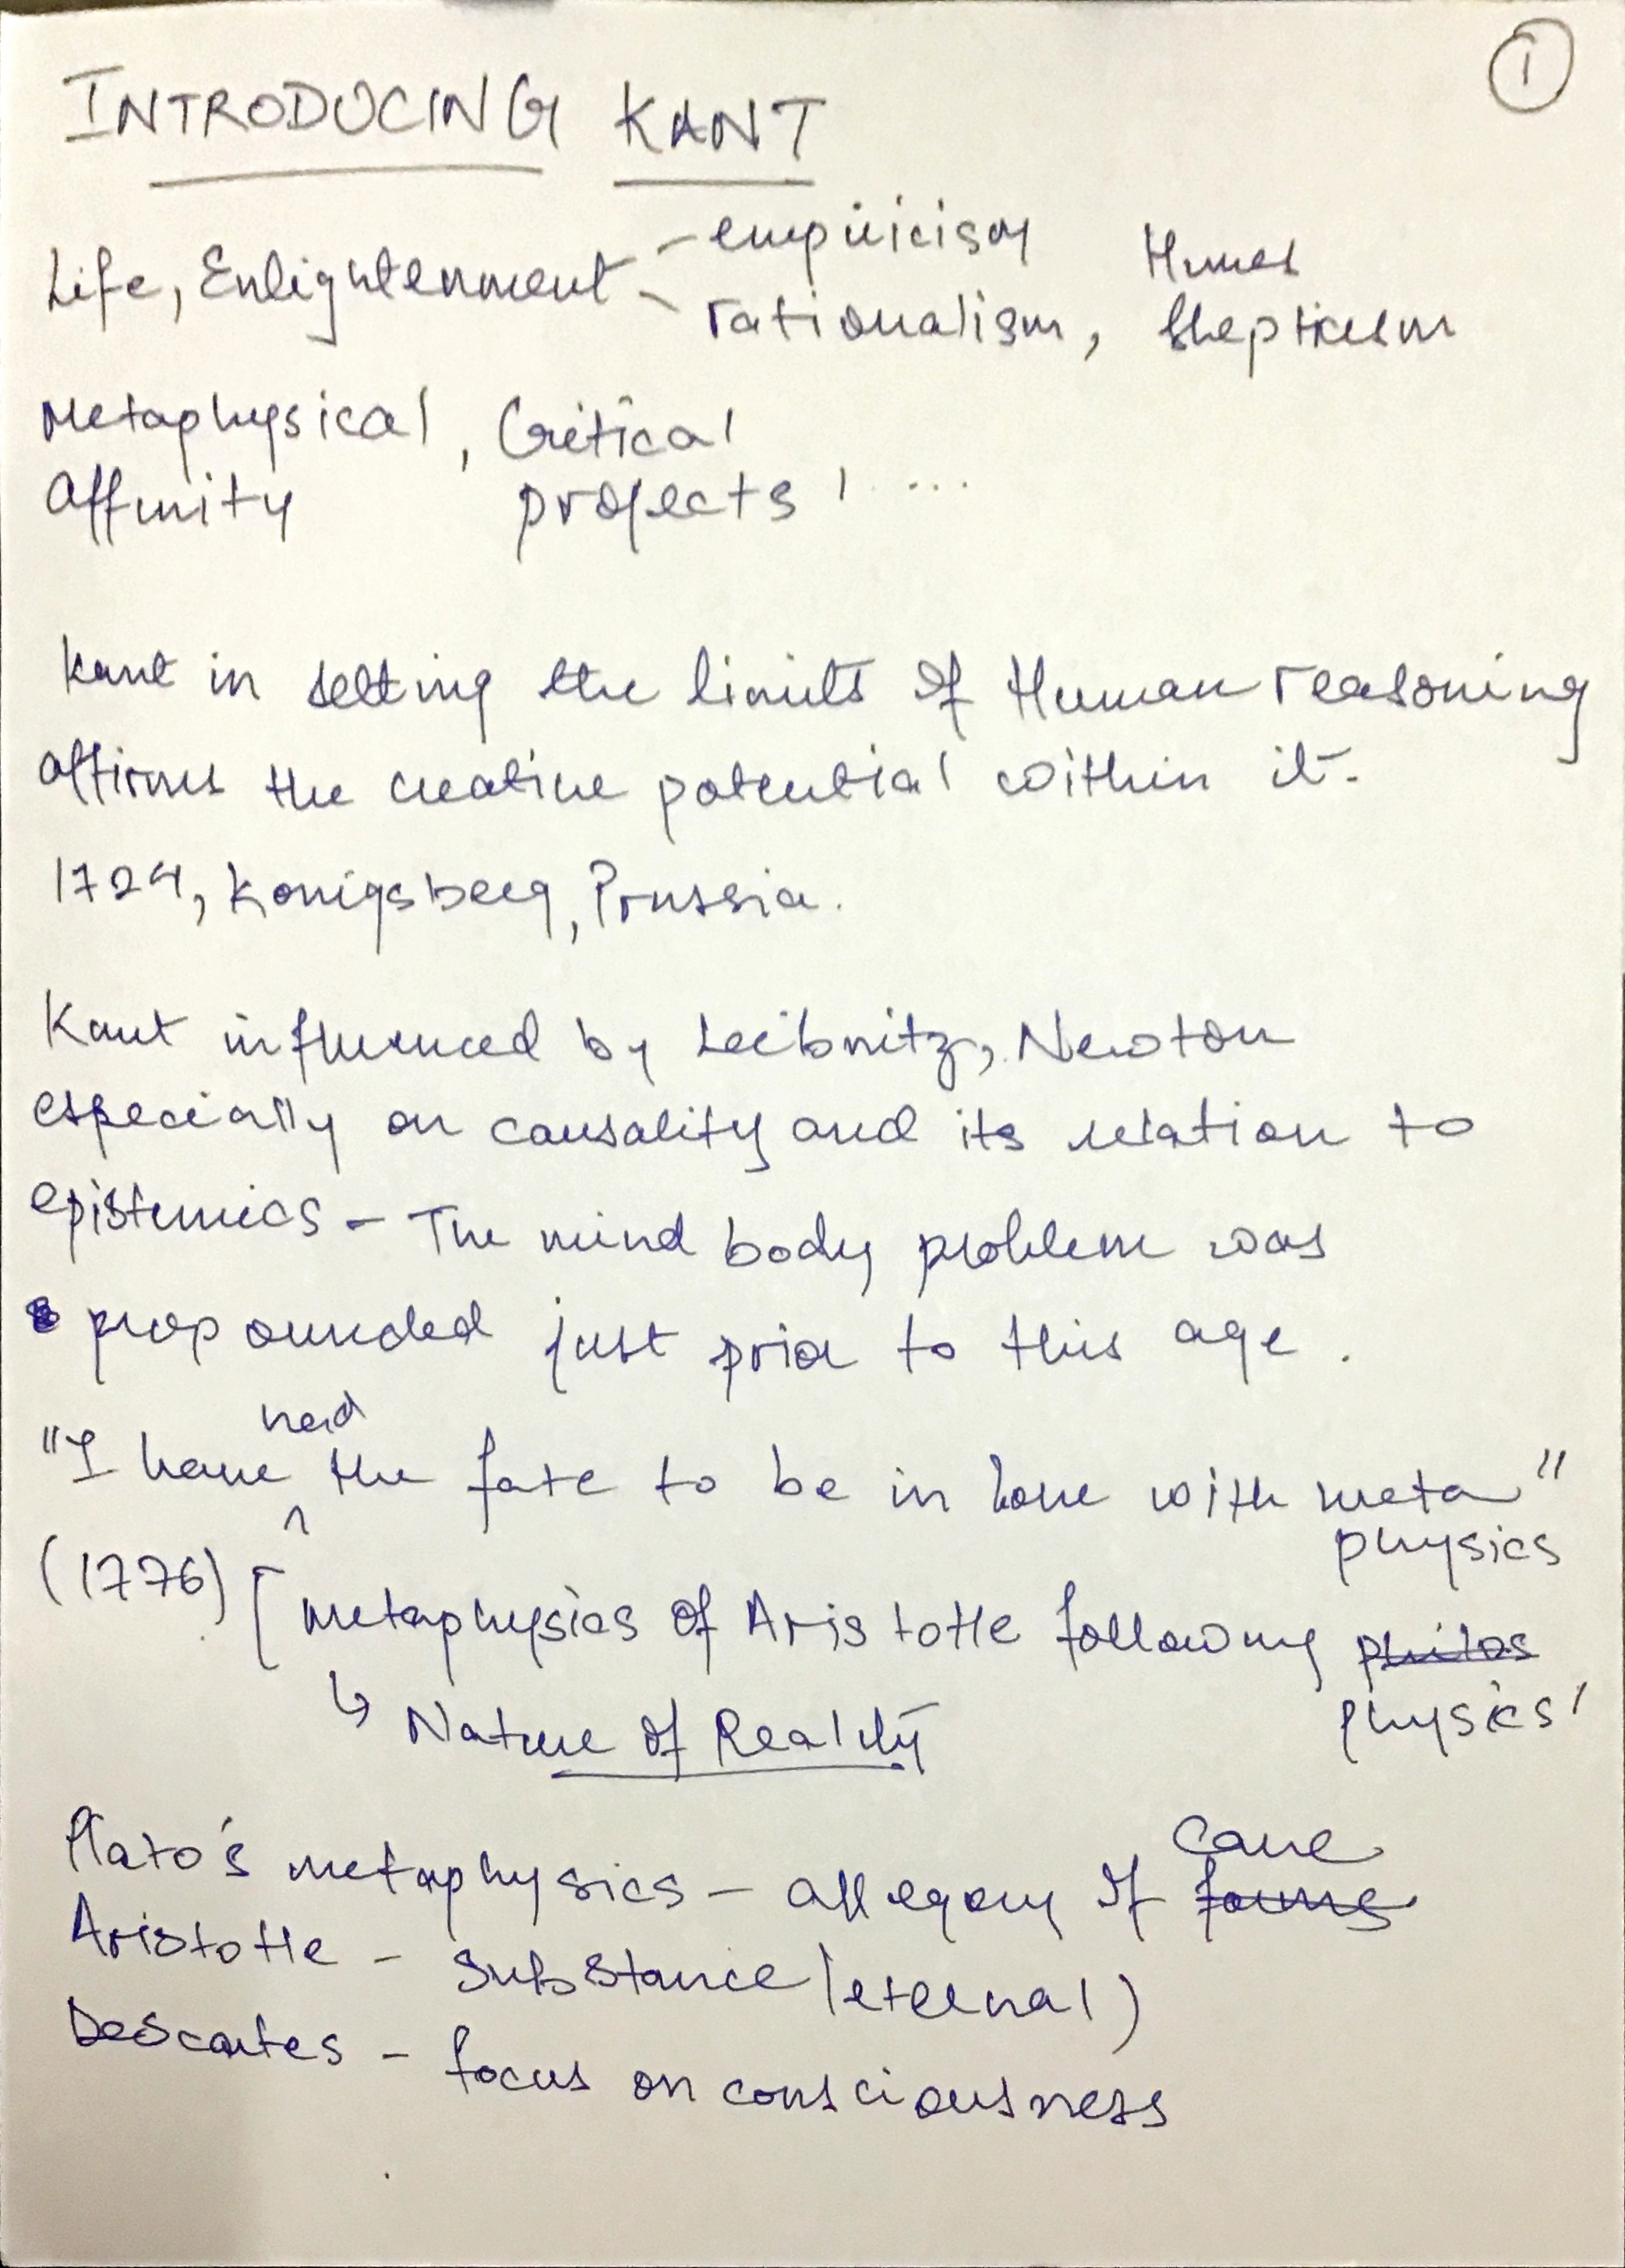 ①
INTRODUCING KANT
Life, Enlightenment - empiricism
- rationalism, Humes Skepticism
Metaphysical, Critical
Affinity projects, ...
Kant in setting the limits of Human reasoning
affirms the creative potential within it.
1724, Konigsberg, Prussia.
Kant influenced by Leibnitz, Newton
especially on causality and its relation to
epistemics - The mind body problem was
propounded just prior to this age.
"I have had the fate to be in love with meta"
physics
(1776) [ Metaphysics of Aristotle following philos
physics'
↳ Nature of Reality
Plato's metaphysics - allegory of forms cave
Aristotle - substance (eternal)
Descartes - focus on consciousness